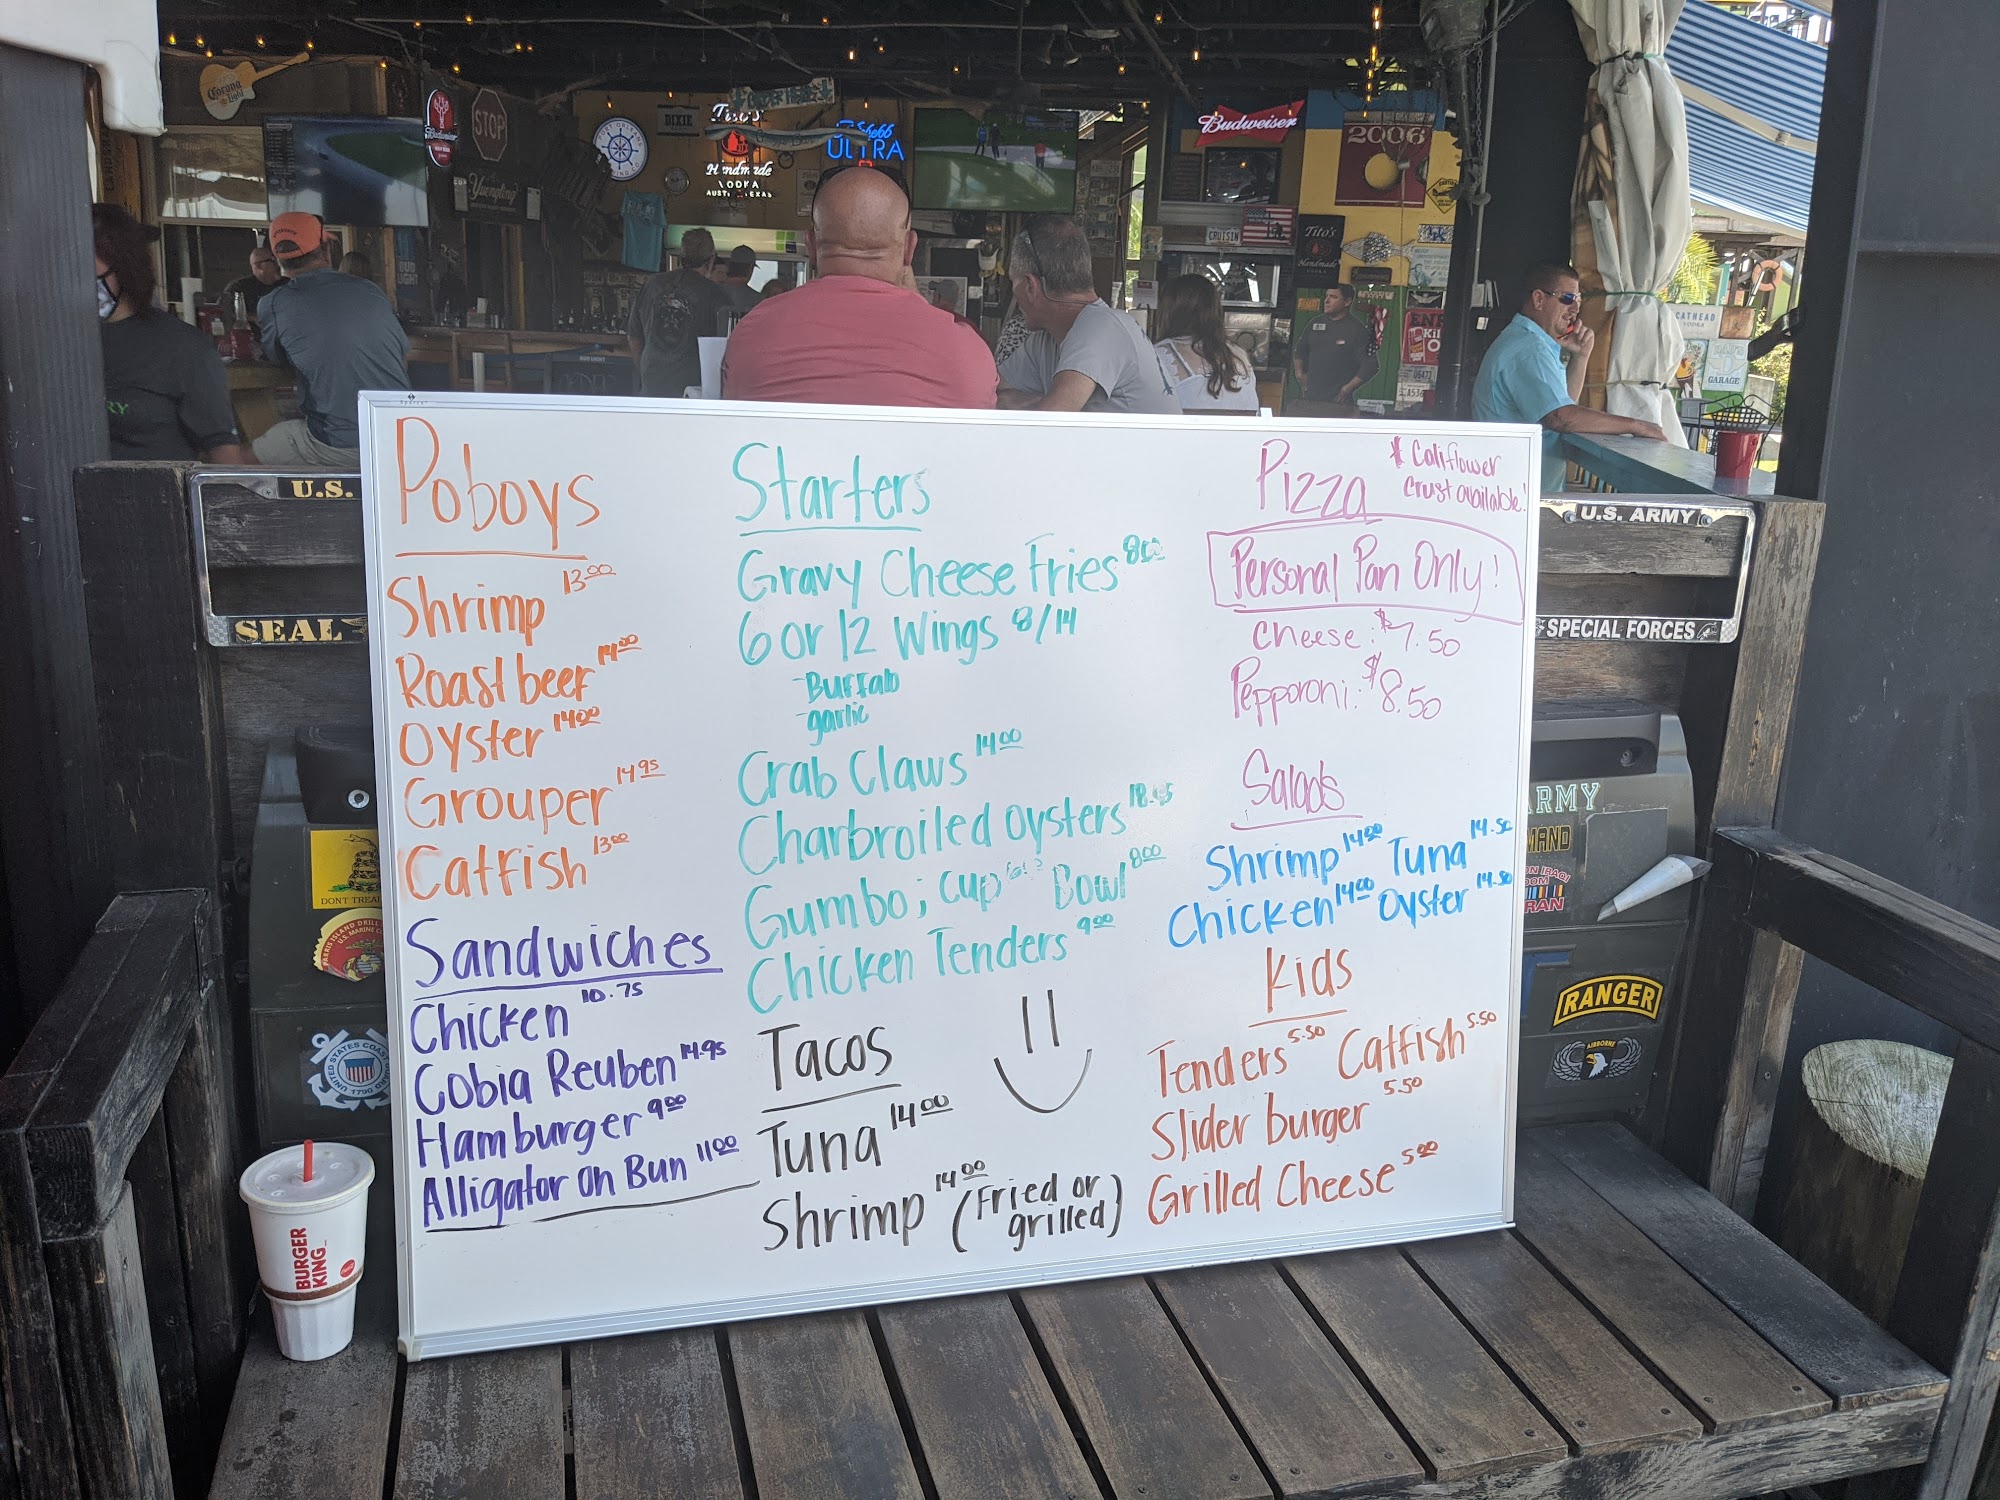 Corona
Light
STOP
Yuengling
DIXIE
Tito's
Handmade
VODKA
AUSTIN TEXAS
ULTRA
Budweiser
2006
CRUISIN
Tito's
Handmade
CATHEAD
VODKA
GARAGE
U.S.
SEAL
U.S. ARMY
SPECIAL FORCES
Poboys
Shrimp 13.00
Roast beef 14.00
Oyster 14.00
Grouper 14.95
Catfish 13.00
Sandwiches
Chicken 10.75
Cobia Reuben 14.95
Hamburger 9.00
Alligator On Bun 11.00
Starters
Gravy Cheese Fries 8.00
6 or 12 Wings 8/14
-Buffalo
-garlic
Crab Claws 14.00
Charbroiled oysters
Gumbo; cup Bowl 8.00
Chicken Tenders 9.00
Tacos
Tuna 14.00
Shrimp 14.00 (Fried or
grilled)
Pizza
* Califlower
Crust available!
Personal Pan Only!
Cheese: $7.50
Pepporoni: $8.50
Salads
Shrimp 14.00 Tuna 14.50
Chicken 14.00 Oyster 14.50
Kids
Tenders 5.50 Catfish 5.50
Slider burger 5.50
Grilled Cheese 5.00
DONT TREA
UNITED STATES COAST
1790
BURGER
KING
ARMY
MAND
ON IRAQI
DOM
RAN
RANGER
AIRBORNE